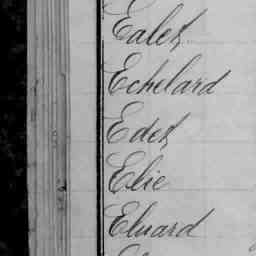 Ealet
Echelard
Edet
Elie
Eluard